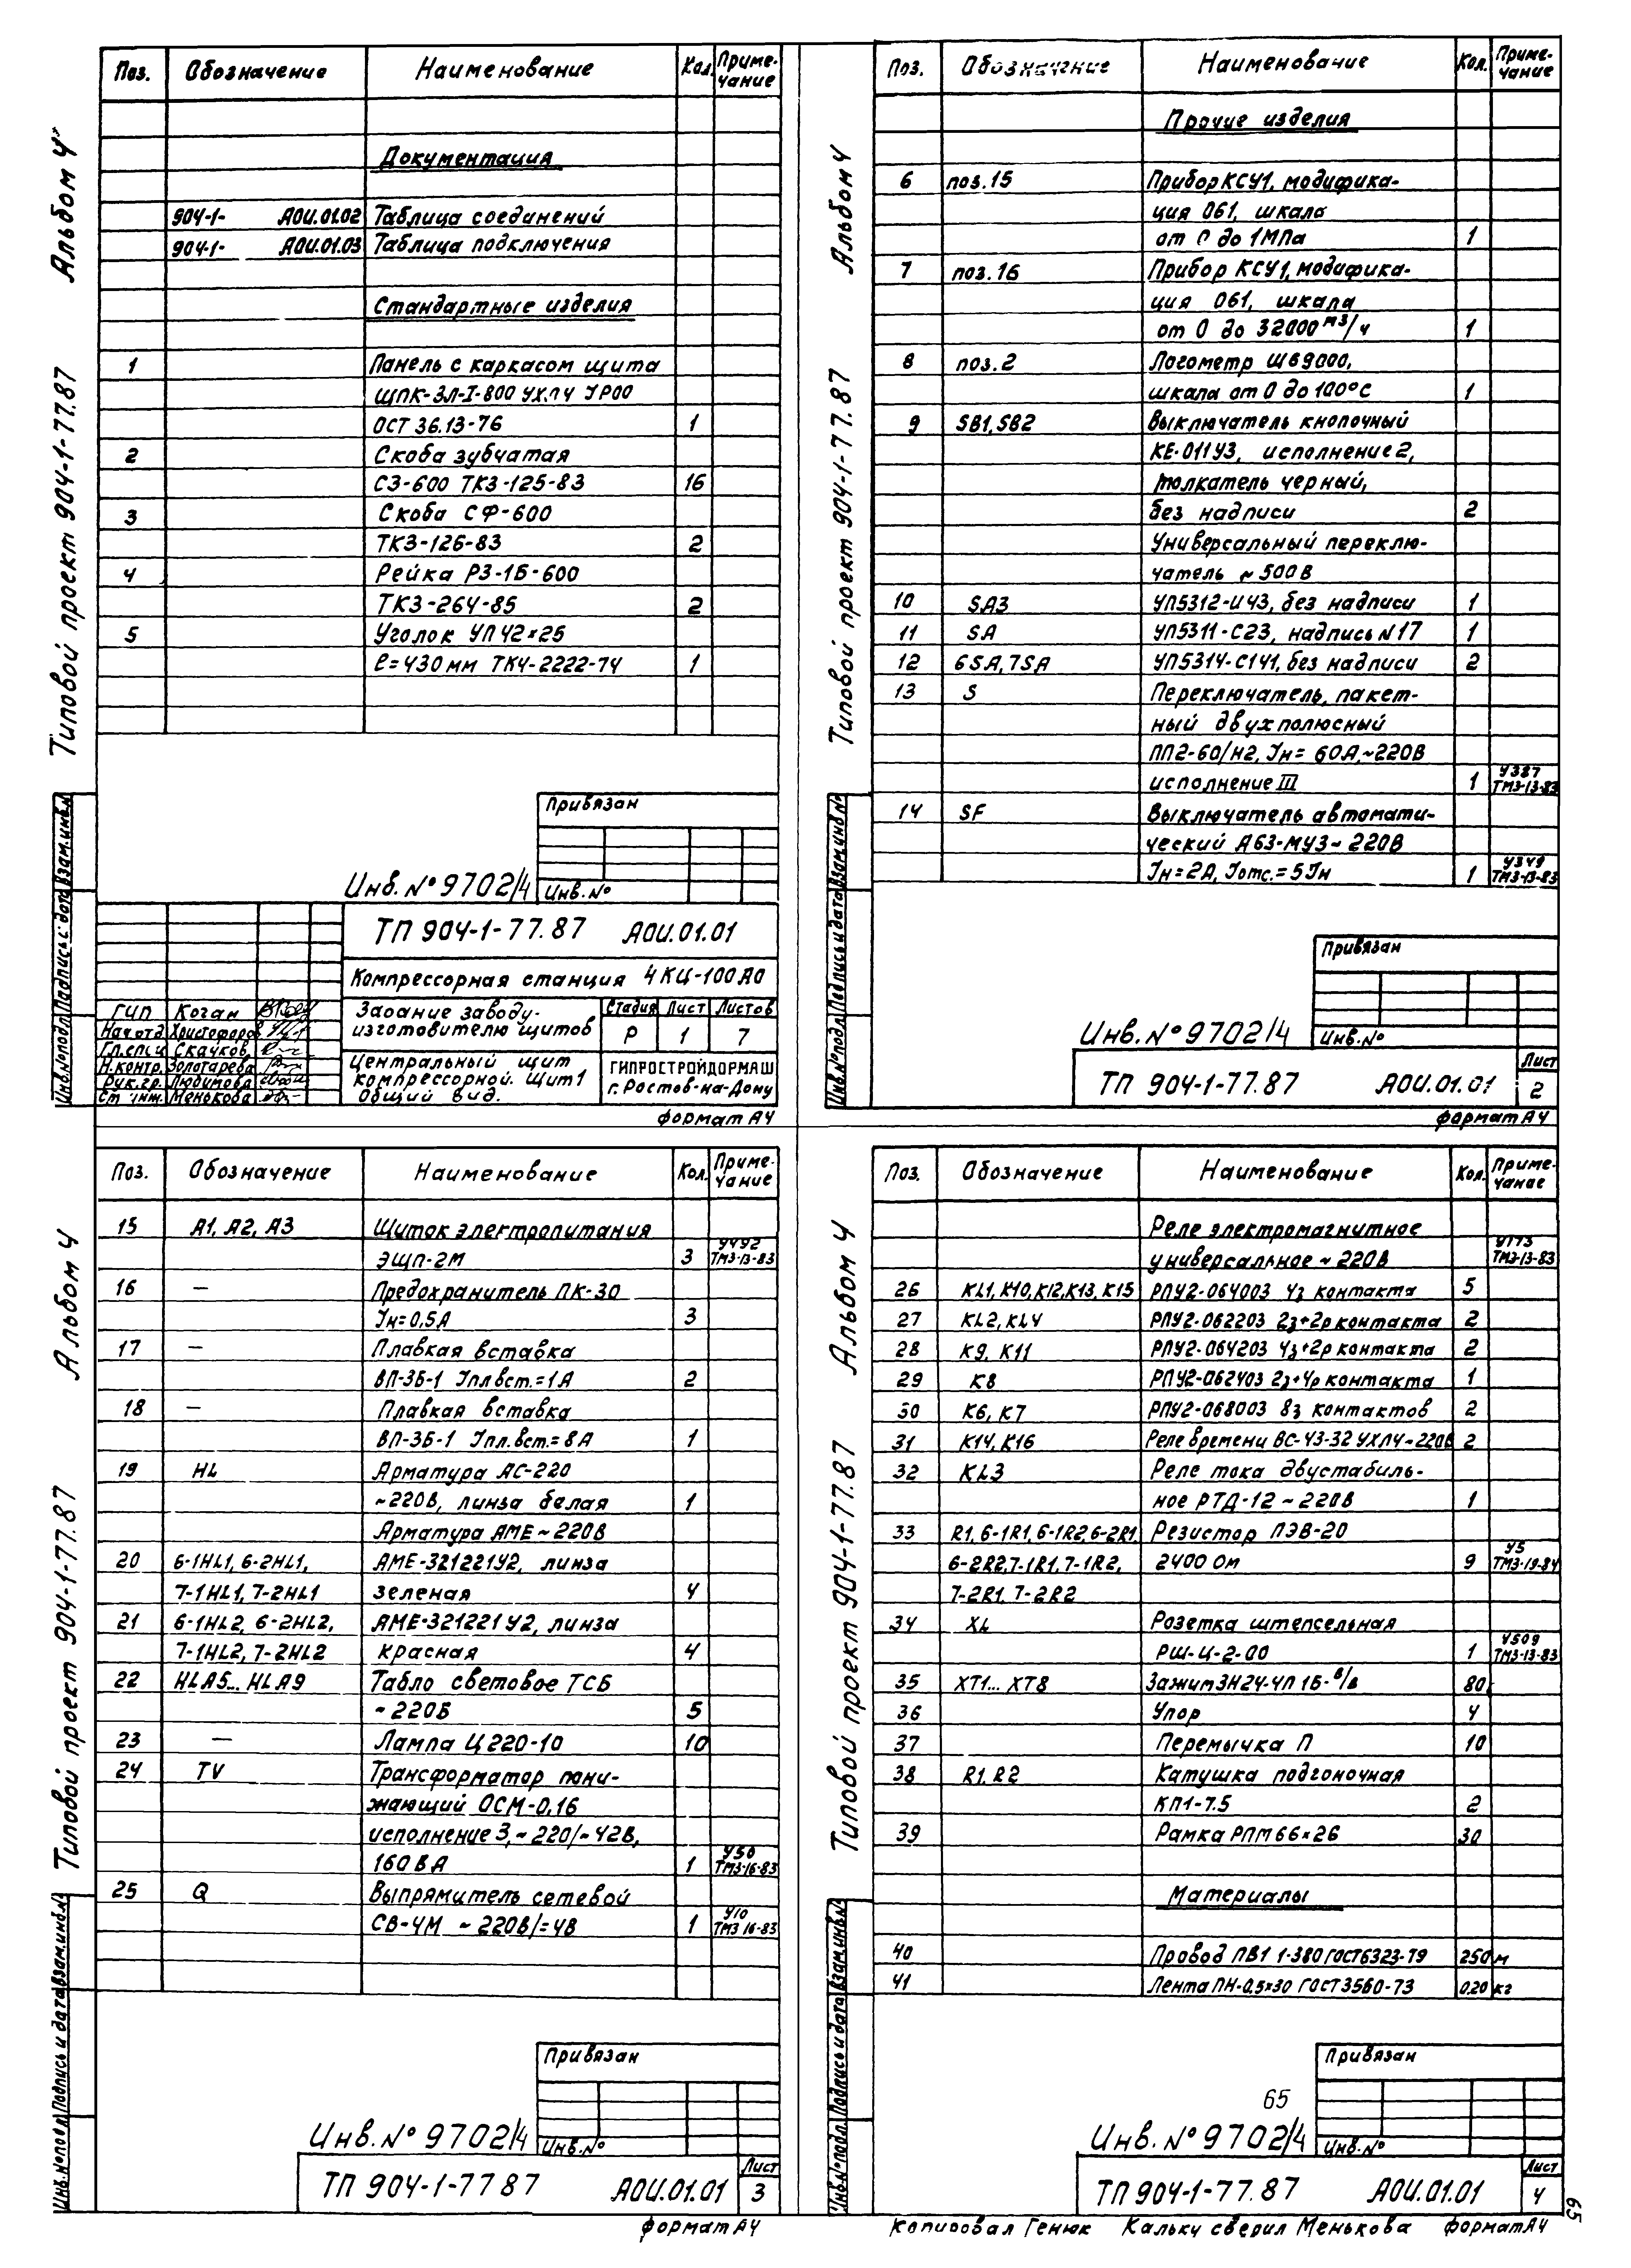 Альбом 4
Типовой проект 904-1-77.87
Взам.инв.№
Подпись и дата
Инв.№подл.
Поз. Обозначение Наименование Кол. Приме-
чание
Документация
904-1- АОИ.01.02 Таблица соединений
904-1- АОИ.01.03 Таблица подключения
Стандартные изделия
1 Панель с каркасом щита
ЩПК-ЗЛ-I-800 УХЛ4 IP00
ОСТ 36.13-76 1
2 Скоба зубчатая
СЗ-600 ТК3-125-83 16
3 Скоба СФ-600
ТК3-126-83 2
4 Рейка РЗ-1Б-600
ТК3-264-85 2
5 Уголок УП 42×25
ℓ=430мм ТК4-2222-74 1
Привязан
Инв.№9702/4 Инв.№
ТП 904-1-77.87 АОИ.01.01
Компрессорная станция 4КЦ-100А0
ГИП Коган
Нач.отд. Христофоров
Гл.спец. Скачков
Н.контр. Золотарева
Рук.гр. Любимова
Ст. инж. Менькова
Задание заводу-
изготовителю щитов
Стадия Лист Листов
Р 1 7
Центральный щит
компрессорной. Щит 1
Общий вид.
ГИПРОСТРОЙДОРМАШ
г.Ростов-на-Дону
формат А4
Альбом 4
Типовой проект 904-1-77.87
Взам.инв.№
Подпись и дата
Инв.№подл.
Поз. Обозначение Наименование Кол. Приме-
чание
Прочие изделия
6 поз.15 Прибор КСУ1, модифика-
ция 061, шкала
от 0 до 1МПа 1
7 поз.16 Прибор КСУ1, модифика-
ция 061, шкала
от 0 до 32000 м3/ч 1
8 поз.2 Логометр Ш69000,
шкала от 0 до 100°С 1
9 SB1,SB2 Выключатель кнопочный
КЕ-011У3, исполнение 2,
толкатель черный,
без надписи 2
Универсальный переклю-
чатель ~500В
10 SA3 УП5312-И43, без надписи 1
11 SA УП5311-С23, надпись N17 1
12 6SA,7SA УП5314-С141, без надписи 2
13 S Переключатель, пакет-
ный двухполюсный
ПП2-60/Н2, Iн= 60А,~220В
исполнение III 1 У387
ТМ3-13-83
14 SF Выключатель автомати-
ческий А63-МУ3~220В
Iн=2А, Iотс.=5Iн 1 У349
ТМ3-13-83
Привязан
Инв.№9702/4 Инв.№
ТП 904-1-77.87 АОИ.01.01
Лист
2
формат А4
Альбом 4
Типовой проект 904-1-77.87
Взам.инв.№
Подпись и дата
Инв.№подл.
Поз. Обозначение Наименование Кол. Приме-
чание
15 А1, А2, А3 Щиток электропитания
ЭЩП-2М 3 У492
ТМ3-13-83
16 — Предохранитель ПК-30
Iн=0,5А 3
17 — Плавкая вставка
ВП-3Б-1 Iпл.вст.=1А 2
18 — Плавкая вставка
ВП-3Б-1 Iпл.вст.=8А 1
19 HL Арматура АС-220
~220В, линза белая 1
Арматура АМЕ~220В
20 6-1HL1, 6-2HL1, АМЕ-321221У2, линза
7-1HL1, 7-2HL1 зеленая 4
21 6-1HL2, 6-2HL2, АМЕ-321221У2, линза
7-1HL2, 7-2HL2 красная 4
22 HLA5... HLA9 Табло световое ТСБ
~220В 5
23 — Лампа Ц220-10 10
24 TV Трансформатор пони-
жающий ОСМ-0,16
исполнение 3,~220/~42В,
160ВА 1 У50
ТМ3-16-83
25 Q Выпрямитель сетевой
СВ-4М ~220В/=4В 1 У10
ТМ3 16-83
Привязан
Инв.№9702/4 Инв.№
ТП 904-1-77 87 АОИ.01.01
Лист
3
формат А4
Альбом 4
Типовой проект 904-1-77.87
Взам.инв.№
Подпись и дата
Инв.№подл.
Поз. Обозначение Наименование Кол. Приме-
чание
Реле электромагнитное
универсальное ~220В У173
ТМ3-13-83
26 KL1, K10,K12,K13,K15 РПУ2-064003 4з контакта 5
27 KL2, KL4 РПУ2-062203 2з+2р контакта 2
28 К9, К11 РПУ2-064203 4з+2р контакта 2
29 К8 РПУ2-062403 2з+4р контакта 1
30 К6, К7 РПУ2-068003 8з контактов 2
31 К14, К16 Реле времени ВС-43-32 УХЛ4~220В 2
32 KL3 Реле тока двустабиль-
ное РТД-12~220В 1
33 R1, 6-1R1, 6-1R2, 6-2R1, Резистор ПЭВ-20
6-2R2, 7-1R1, 7-1R2, 2400 Ом 9 У5
ТМ3-19-84
7-2R1, 7-2R2
34 XL Розетка штепсельная
РШ-Ц-2-00 1 У509
ТМ3-13-83
35 XT1... XT8 Зажим ЗН24-4П 1Б-В/В 80
36 Упор 4
37 Перемычка П 10
38 R1, R2 Катушка подгоночная
КП1-7.5 2
39 Рамка РПМ 66×26 30
Материалы
40 Провод ПВ1 1-380 ГОСТ6323-79 250 м
41 Лента ПН-0,5×30 ГОСТ3560-73 0,20 кг
Привязан
65
Инв.№9702/4 Инв.№
ТП 904-1-77.87 АОИ.01.01
Лист
4
65
Копировал Генюк Кальку сверил Менькова формат А4